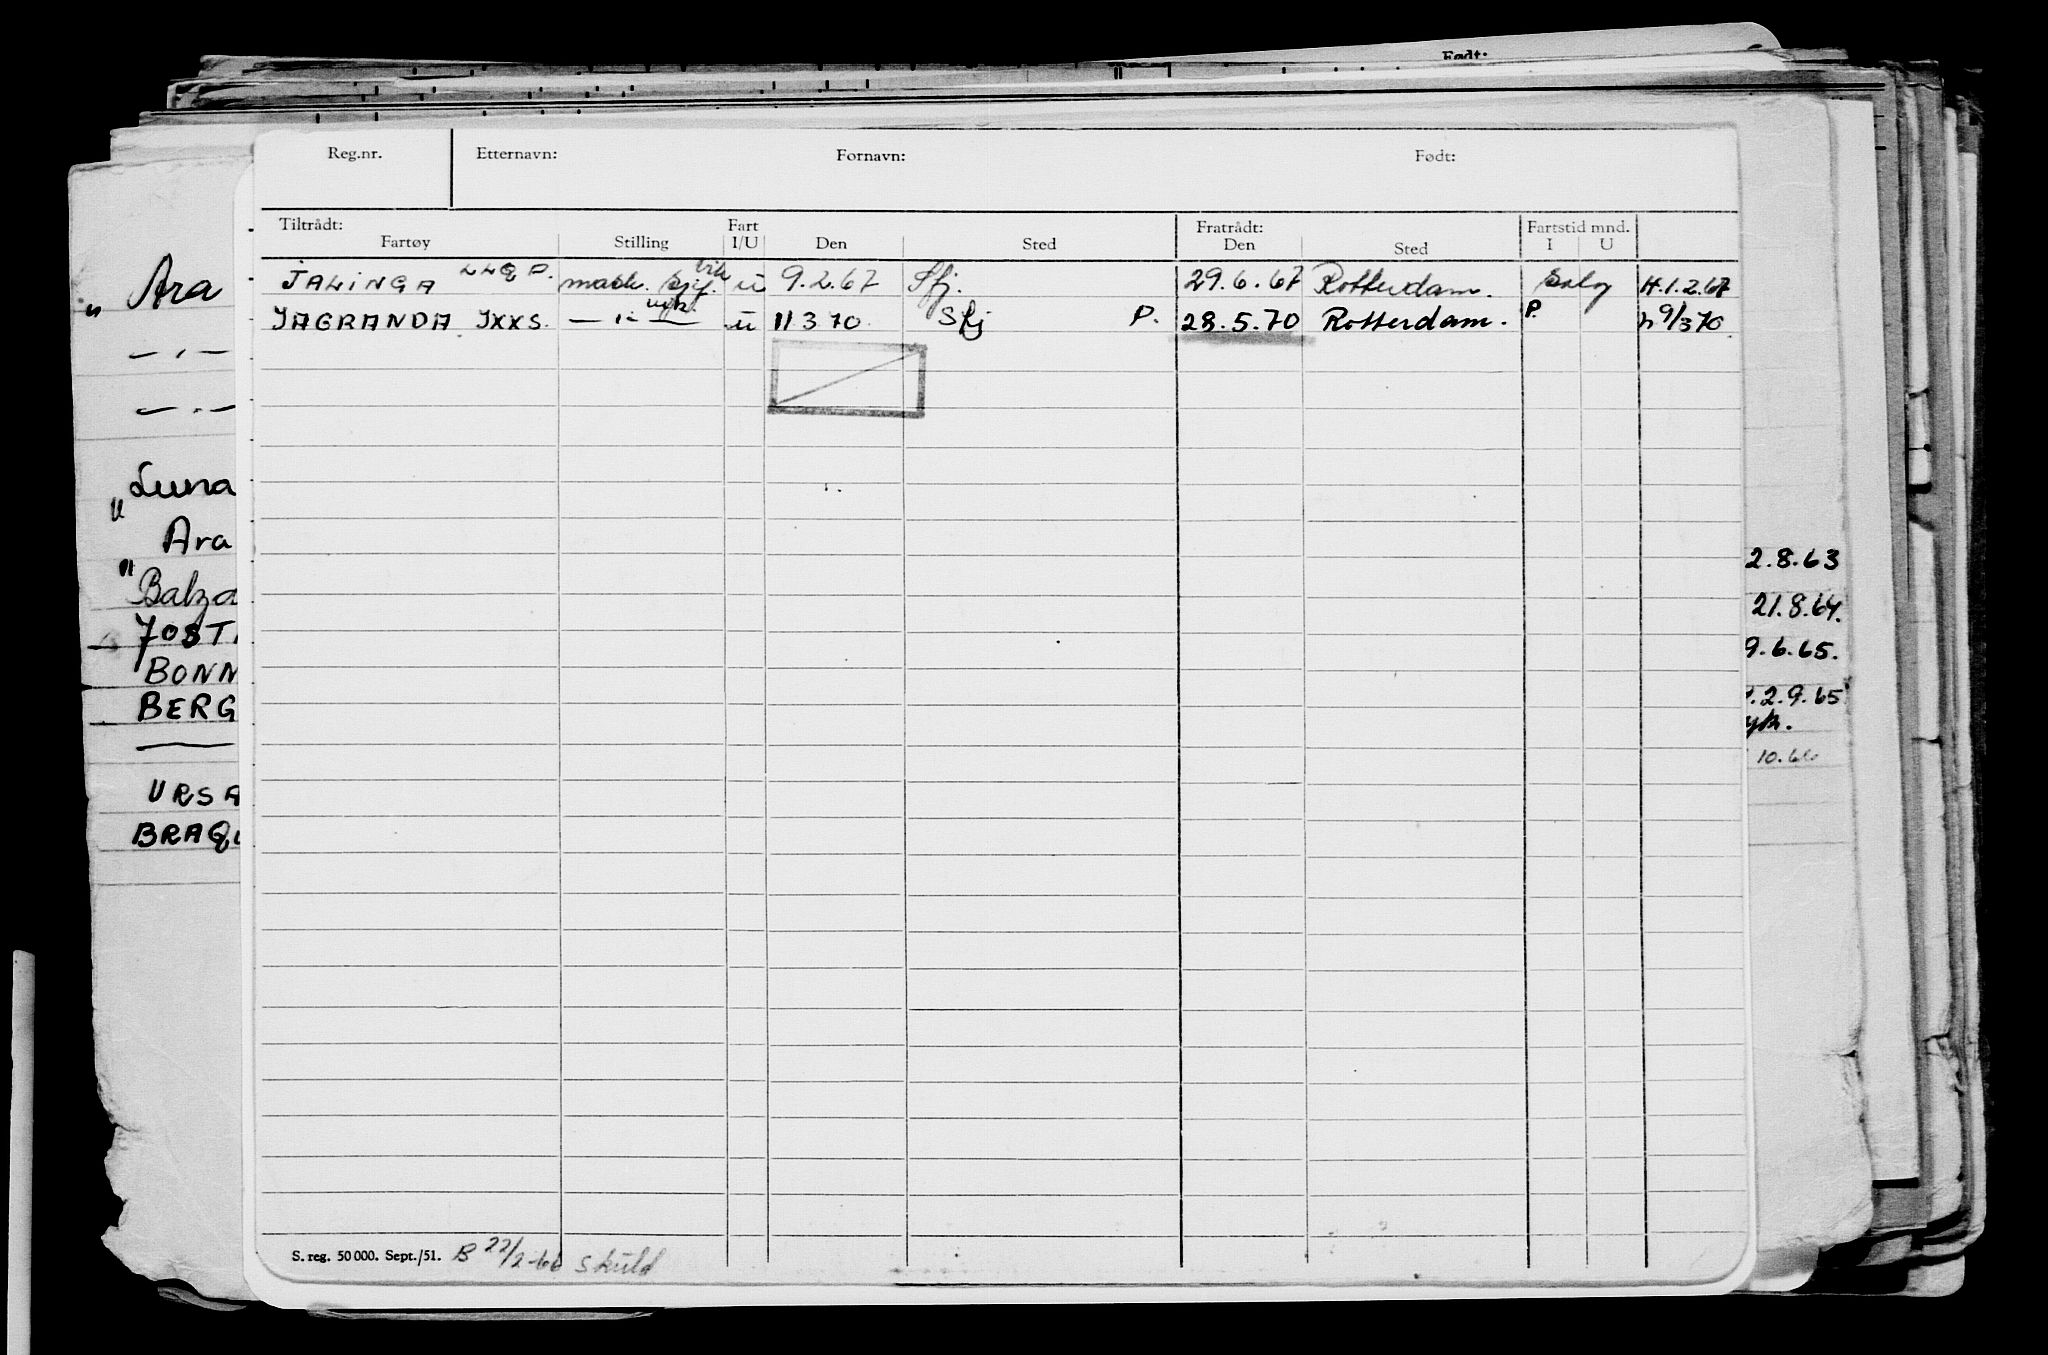 Født:
Reg.nr. Etternavn: Fornavn: Født:
Tiltrådt: Fart Fratrådt: Fartstid mnd.
Fartøy Stilling I/U Den Sted Den Sted I U
JALINGA LLQP. mask. sjef. vik u 9.2.67 Sfj. 29.6.67 Rotterdam. Salg H.1.2.67
JAGRANDA JXXS. — " — u 11 3 70 Sfj P. 28.5.70 Rotterdam. P. h 9/3 70
" Ara
— " —
— " —
" Luna
Ara
2.8.63
" Balza
21.8.64.
JOST
9.6.65.
BONN
BERG
2.9.65
10.66
URSA
BRAQU
S. reg. 50 000. Sept./51. B 22/2-66 Skuld